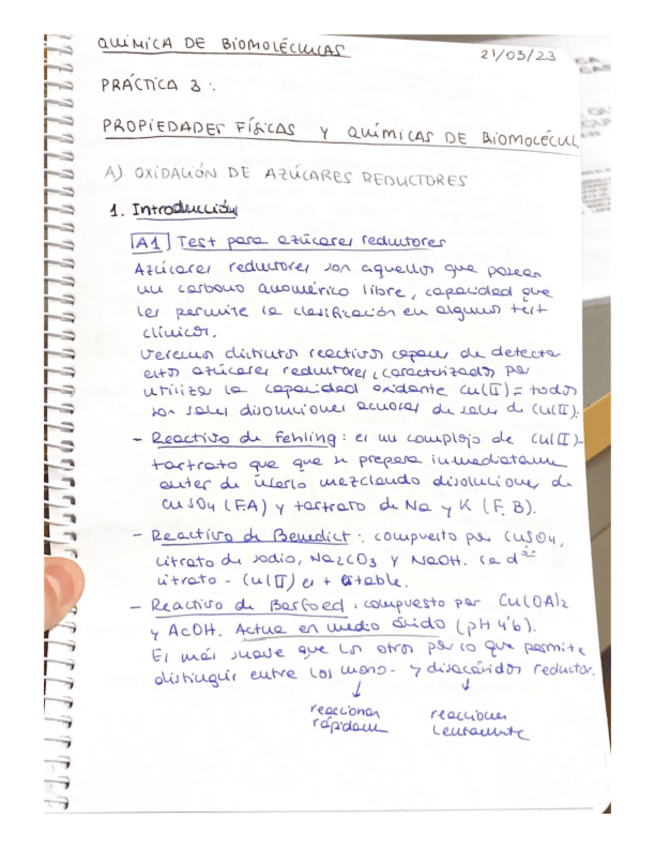 QUÍMICA DE BIOMOLÉCULAS
21/03/23
PRÁCTICA 3:
PROPIEDADES FÍSICAS Y QUÍMICAS DE BIOMOLÉCUL
A) OXIDACIÓN DE AZÚCARES REDUCTORES
1. Introducción
A1 Test para azúcares reductores
Azúcares reductores son aquellos que posean
un carbono anomérico libre, capacidad que
les permite la clasificación en algunos test
clínicos.
Veremos distintos reactivos capaces de detecta
estos azúcares reductores, caracterizados por
utilizar la capacidad oxidante Cu(II) = todos
son sales disoluciones acuosas de sales de Cu(II).
- Reactivo de Fehling: es un complejo de Cu(II)-
tartrato que que se prepara inmediatame
antes de usarlo mezclando disoluciones de
CuSO4 (F.A) y tartrato de Na y K (F.B).
- Reactivo de Benedict: compuesto por CuSO4,
citrato de sodio, Na2CO3 y NaOH. La
citrato - Cu(II) es + estable.
- Reactivo de Barfoed: compuesto por Cu(OA)2
y AcOH. Actua en medio ácido (pH 4'6).
Es más suave que los otros por lo que permite
distinguir entre los mono- y disacáridos reductor.
↓ ↓
reaccionan reaccionan
rápidam lentamente